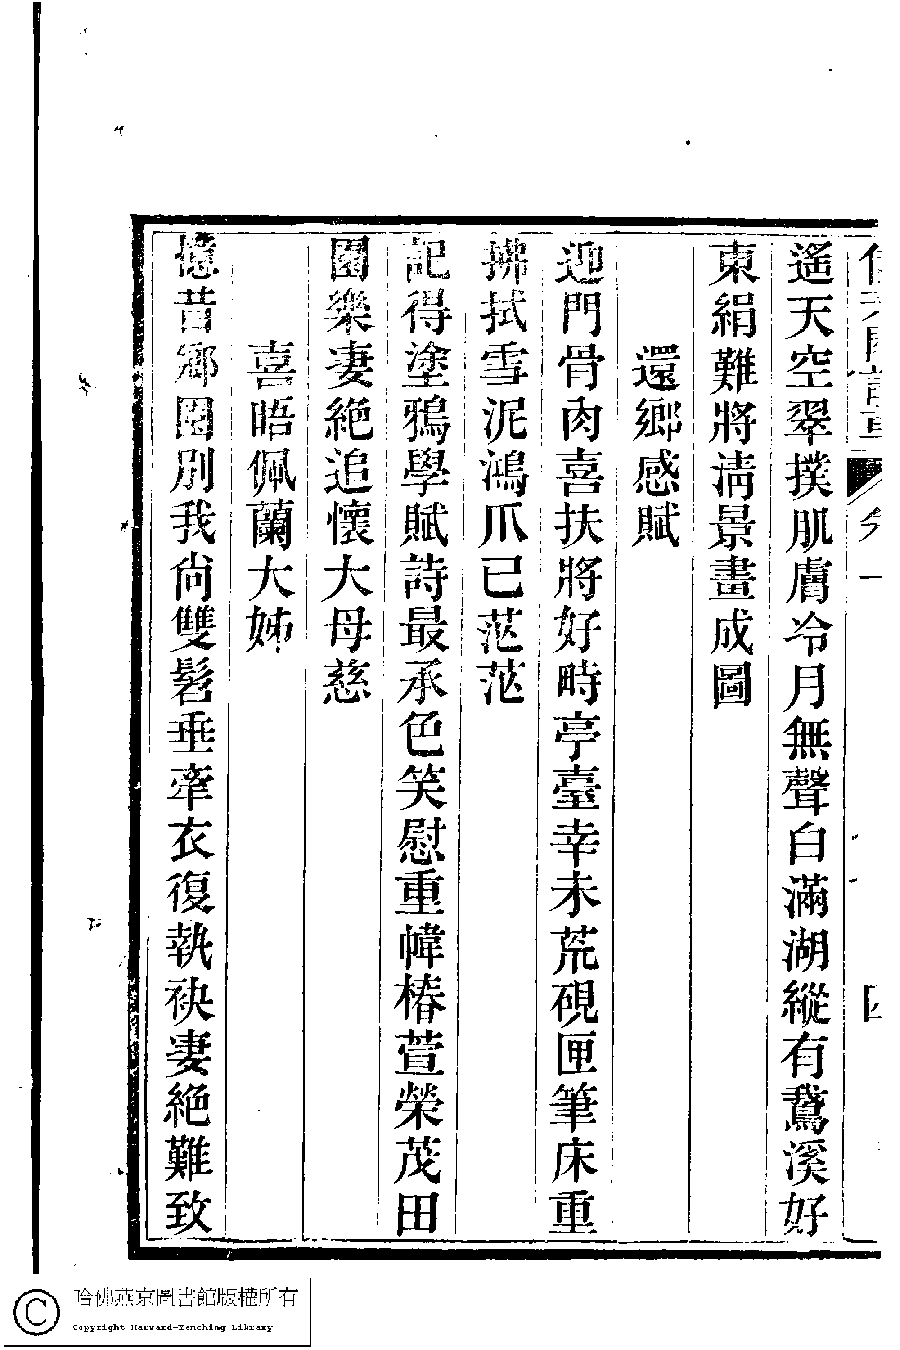 遙天空翠撲肌膚冷月無聲白滿湖縱有鵞溪好
東絹難將清景畫成圖
還鄉感賦
迎門骨肉喜扶將好時亭臺幸未荒硯匣筆床重
拂拭雪泥鴻爪已茫茫
記得塗鴉學賦詩最承色笑慰重幃椿萱榮茂田
園樂妻絶追懷大母慈
喜晤佩蘭大姊
憶昔鄉園別我尙雙髫垂牽衣復執袂妻絶難致
哈佛燕京圖書館版權所有
Copyright Harvard-Yenching Library